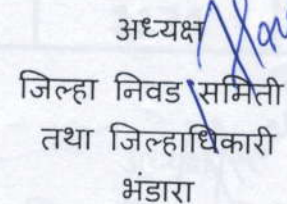 अध्यक्ष
जिल्हा निवड समिती
तथा जिल्हाधिकारी
भंडारा